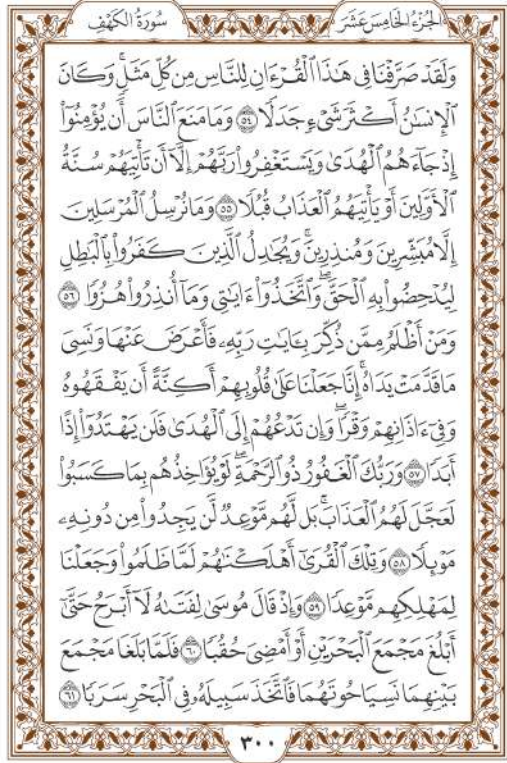 الجُزْءُ الخَامِسَ عَشَرَ سُورَةُ الكَهْفِ
وَلَقَدْ صَرَّفْنَا فِي هَٰذَا ٱلْقُرْءَانِ لِلنَّاسِ مِن كُلِّ مَثَلٍۚ وَكَانَ
ٱلْإِنسَٰنُ أَكْثَرَ شَىْءٍ جَدَلًا ۝٥٤ وَمَا مَنَعَ ٱلنَّاسَ أَن يُؤْمِنُوٓا۟
إِذْ جَآءَهُمُ ٱلْهُدَىٰ وَيَسْتَغْفِرُوا۟ رَبَّهُمْ إِلَّآ أَن تَأْتِيَهُمْ سُنَّةُ
ٱلْأَوَّلِينَ أَوْ يَأْتِيَهُمُ ٱلْعَذَابُ قُبُلًا ۝٥٥ وَمَا نُرْسِلُ ٱلْمُرْسَلِينَ
إِلَّا مُبَشِّرِينَ وَمُنذِرِينَۚ وَيُجَٰدِلُ ٱلَّذِينَ كَفَرُوا۟ بِٱلْبَٰطِلِ
لِيُدْحِضُوا۟ بِهِ ٱلْحَقَّۖ وَٱتَّخَذُوٓا۟ ءَايَٰتِى وَمَآ أُنذِرُوا۟ هُزُوًا ۝٥٦
وَمَنْ أَظْلَمُ مِمَّن ذُكِّرَ بِـَٔايَٰتِ رَبِّهِۦ فَأَعْرَضَ عَنْهَا وَنَسِىَ
مَا قَدَّمَتْ يَدَاهُۚ إِنَّا جَعَلْنَا عَلَىٰ قُلُوبِهِمْ أَكِنَّةً أَن يَفْقَهُوهُ
وَفِىٓ ءَاذَانِهِمْ وَقْرًاۖ وَإِن تَدْعُهُمْ إِلَى ٱلْهُدَىٰ فَلَن يَهْتَدُوٓا۟ إِذًا
أَبَدًا ۝٥٧ وَرَبُّكَ ٱلْغَفُورُ ذُو ٱلرَّحْمَةِۖ لَوْ يُؤَاخِذُهُم بِمَا كَسَبُوا۟
لَعَجَّلَ لَهُمُ ٱلْعَذَابَۚ بَل لَّهُم مَّوْعِدٌ لَّن يَجِدُوا۟ مِن دُونِهِۦ
مَوْئِلًا ۝٥٨ وَتِلْكَ ٱلْقُرَىٰٓ أَهْلَكْنَٰهُمْ لَمَّا ظَلَمُوا۟ وَجَعَلْنَا
لِمَهْلِكِهِم مَّوْعِدًا ۝٥٩ وَإِذْ قَالَ مُوسَىٰ لِفَتَىٰهُ لَآ أَبْرَحُ حَتَّىٰٓ
أَبْلُغَ مَجْمَعَ ٱلْبَحْرَيْنِ أَوْ أَمْضِىَ حُقُبًا ۝٦٠ فَلَمَّا بَلَغَا مَجْمَعَ
بَيْنِهِمَا نَسِيَا حُوتَهُمَا فَٱتَّخَذَ سَبِيلَهُۥ فِى ٱلْبَحْرِ سَرَبًا ۝٦١
٣٠٠